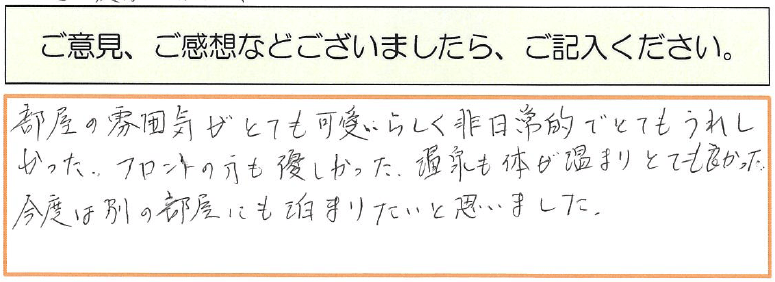 ご意見、ご感想などございましたら、ご記入ください。
部屋の雰囲気がとても可愛いらしく非日常的でとてもうれし
かった。フロントの方も優しかった。温泉も体が温まりとても良かった。
今度は別の部屋にも泊まりたいと思いました。